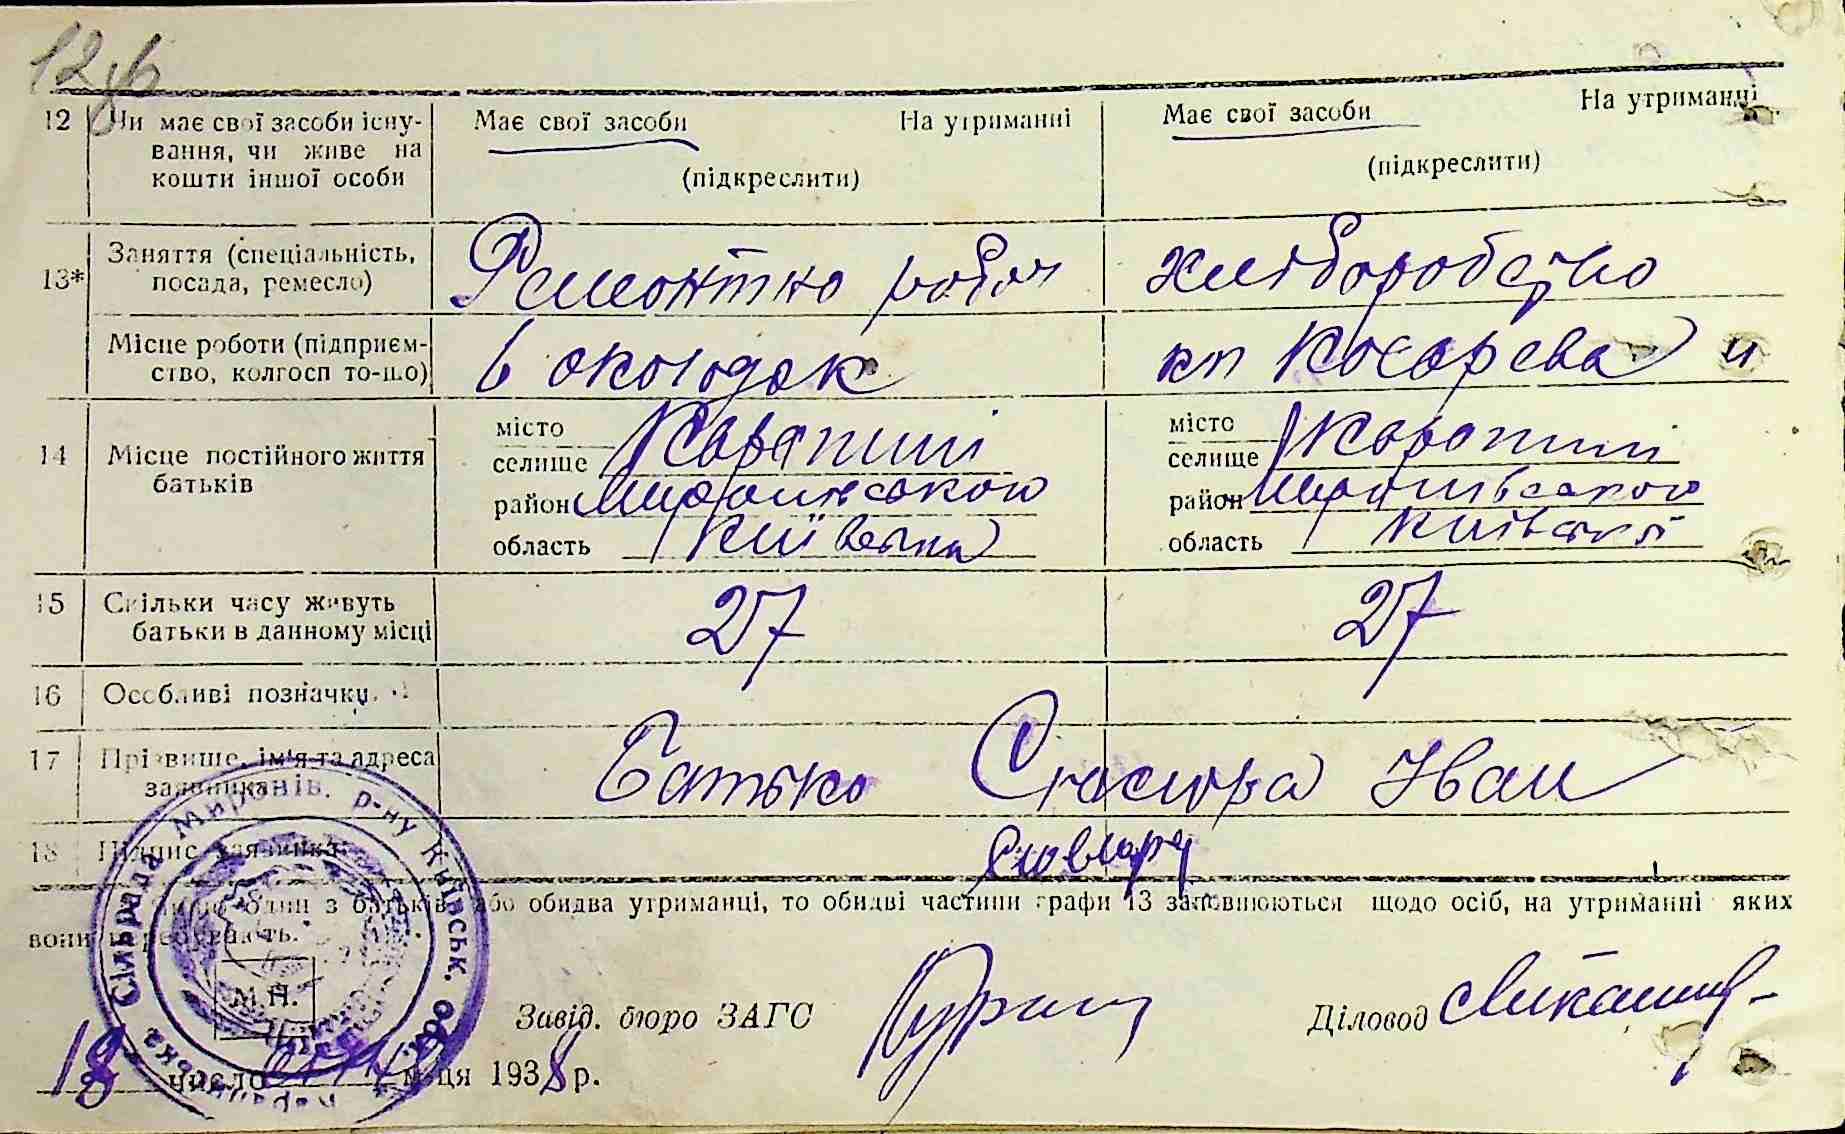 12
12 Чи має свої засоби існу-
вання, чи живе на
кошти іншої особи
Має свої засоби На утриманні
(підкреслити)
Має свої засоби На утриманні
(підкреслити)
13* Заняття (спеціальність,
посада, ремесло)
Ремонтно робоч
хліборобство
Місце роботи (підприєм-
ство, колгосп то-що)
6 околодок
кп Косарева
14 Місце постійного життя
батьків
місто
селище Карапиші
район Миронівського
область Київська
місто
селище Карапиші
район Миронівського
область Київській
15 Скільки часу живуть
батьки в данному місці
27
27
16 Особливі позначки.
17 Прізвище, ім'я та адреса
заявника.
Батько Іван
18 Підпис заявника
один з батьків або обидва утриманці, то обидві частини графи 13 заповнюються щодо осіб, на утриманні яких
вони перебувають.
Сільрада Миронів. р-ну Київськ. обл.
М.П.
Завід. бюро ЗАГС
Діловод
18 число м-ця 1938 р.